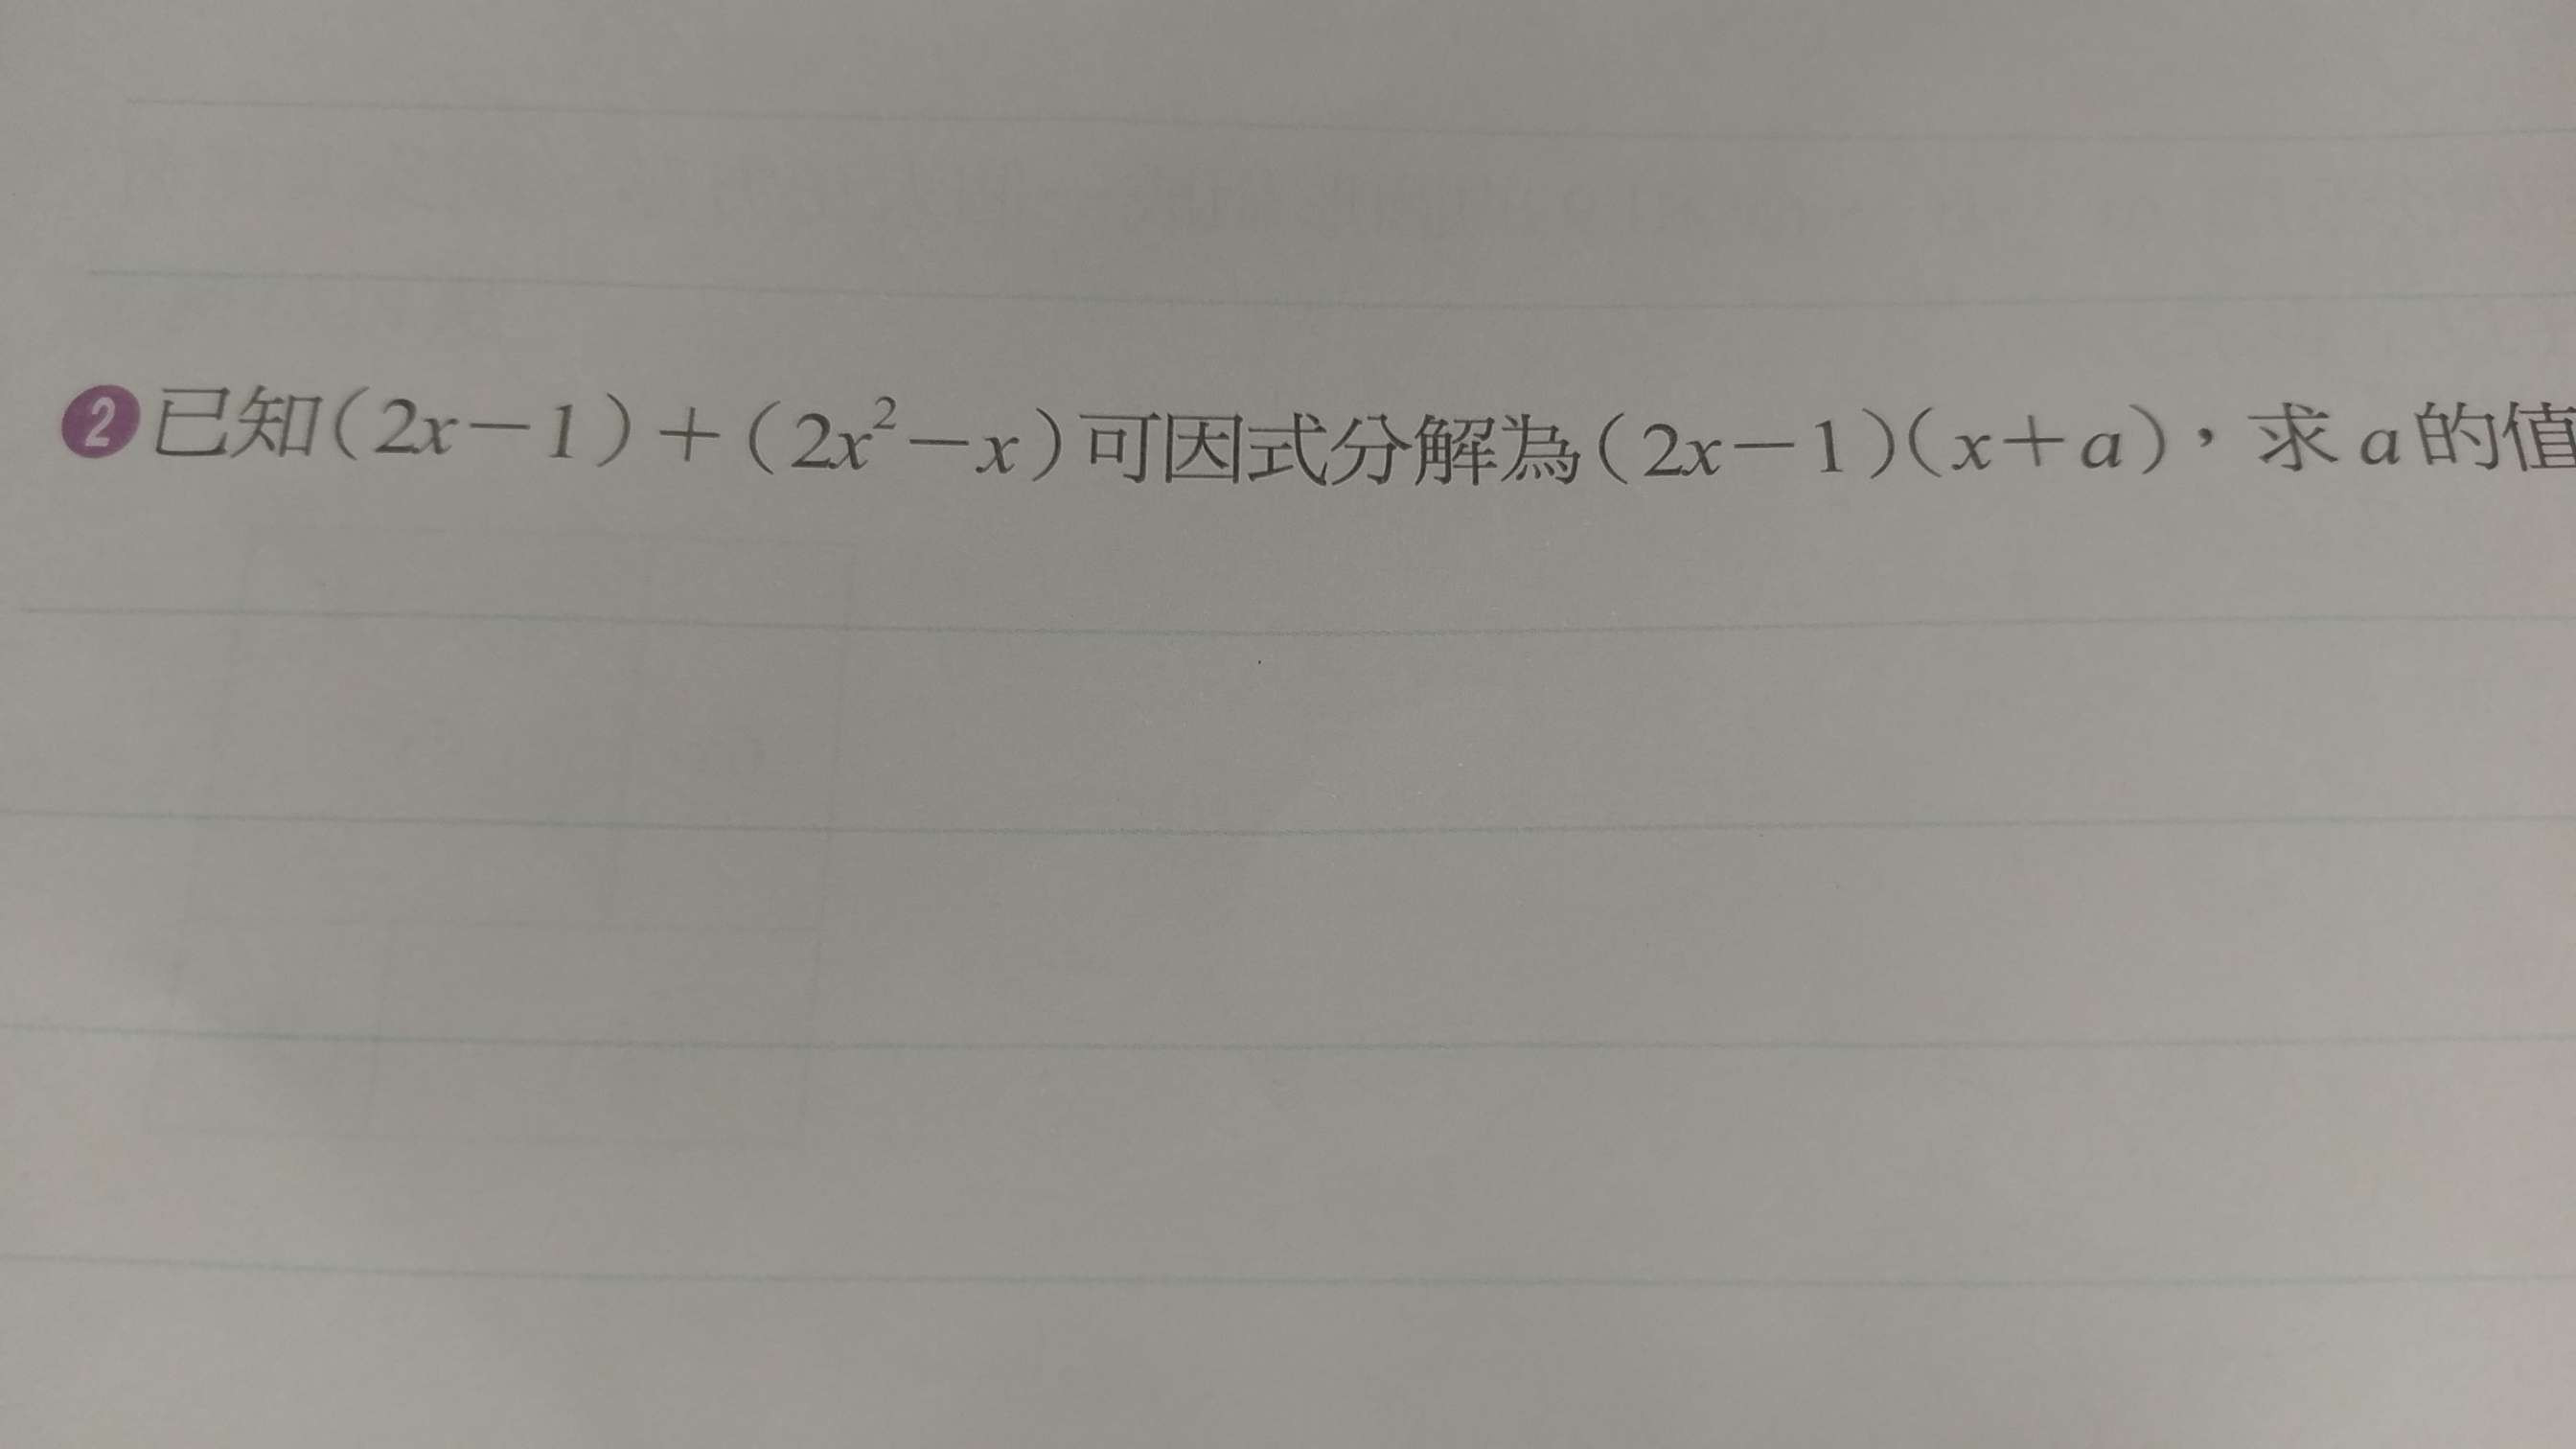 2 已知(2x－1)＋(2x²－x)可因式分解為(2x－1)(x＋a)，求 a 的值